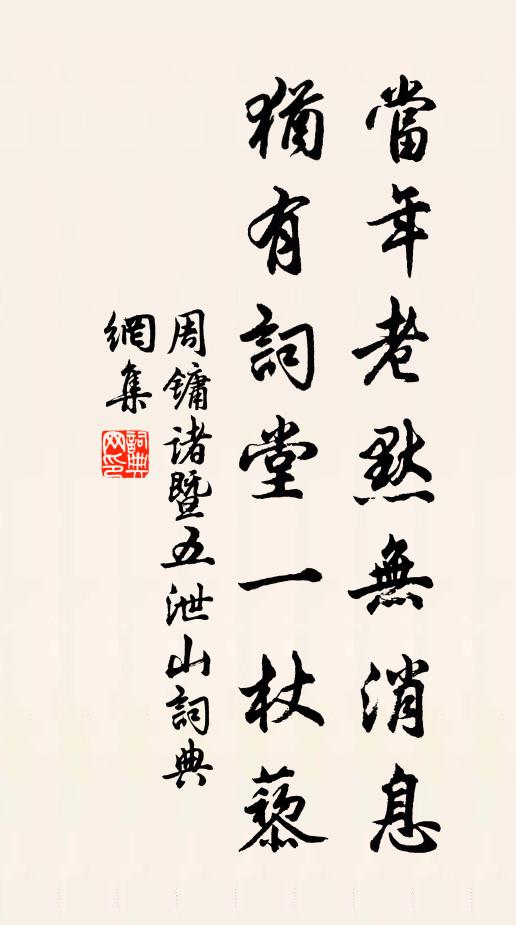 當年老默無消息
猶有詞堂一杖藜
周鏞諸暨五泄山詞典
網集
詞典
网印